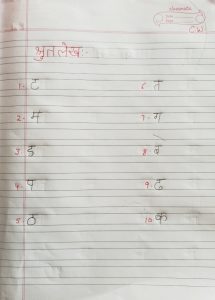 classmate
Date
Page
C.W
श्रुतलेख :-
1- ट
2- म
3- ड
4- प
5- ठ
6- त
7- ग
8- बे
9- ढ
10- क